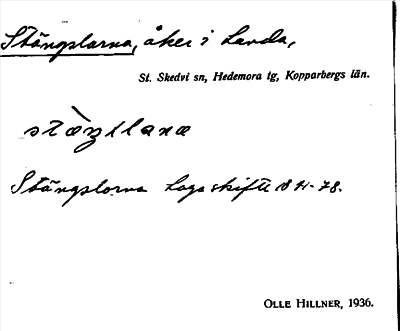 Stängslarna, åker i Landa,
St. Skedvi sn, Hedemora tg, Kopparbergs län.
Stängslorna Laga skifte
OLLE HILLNER, 1936.